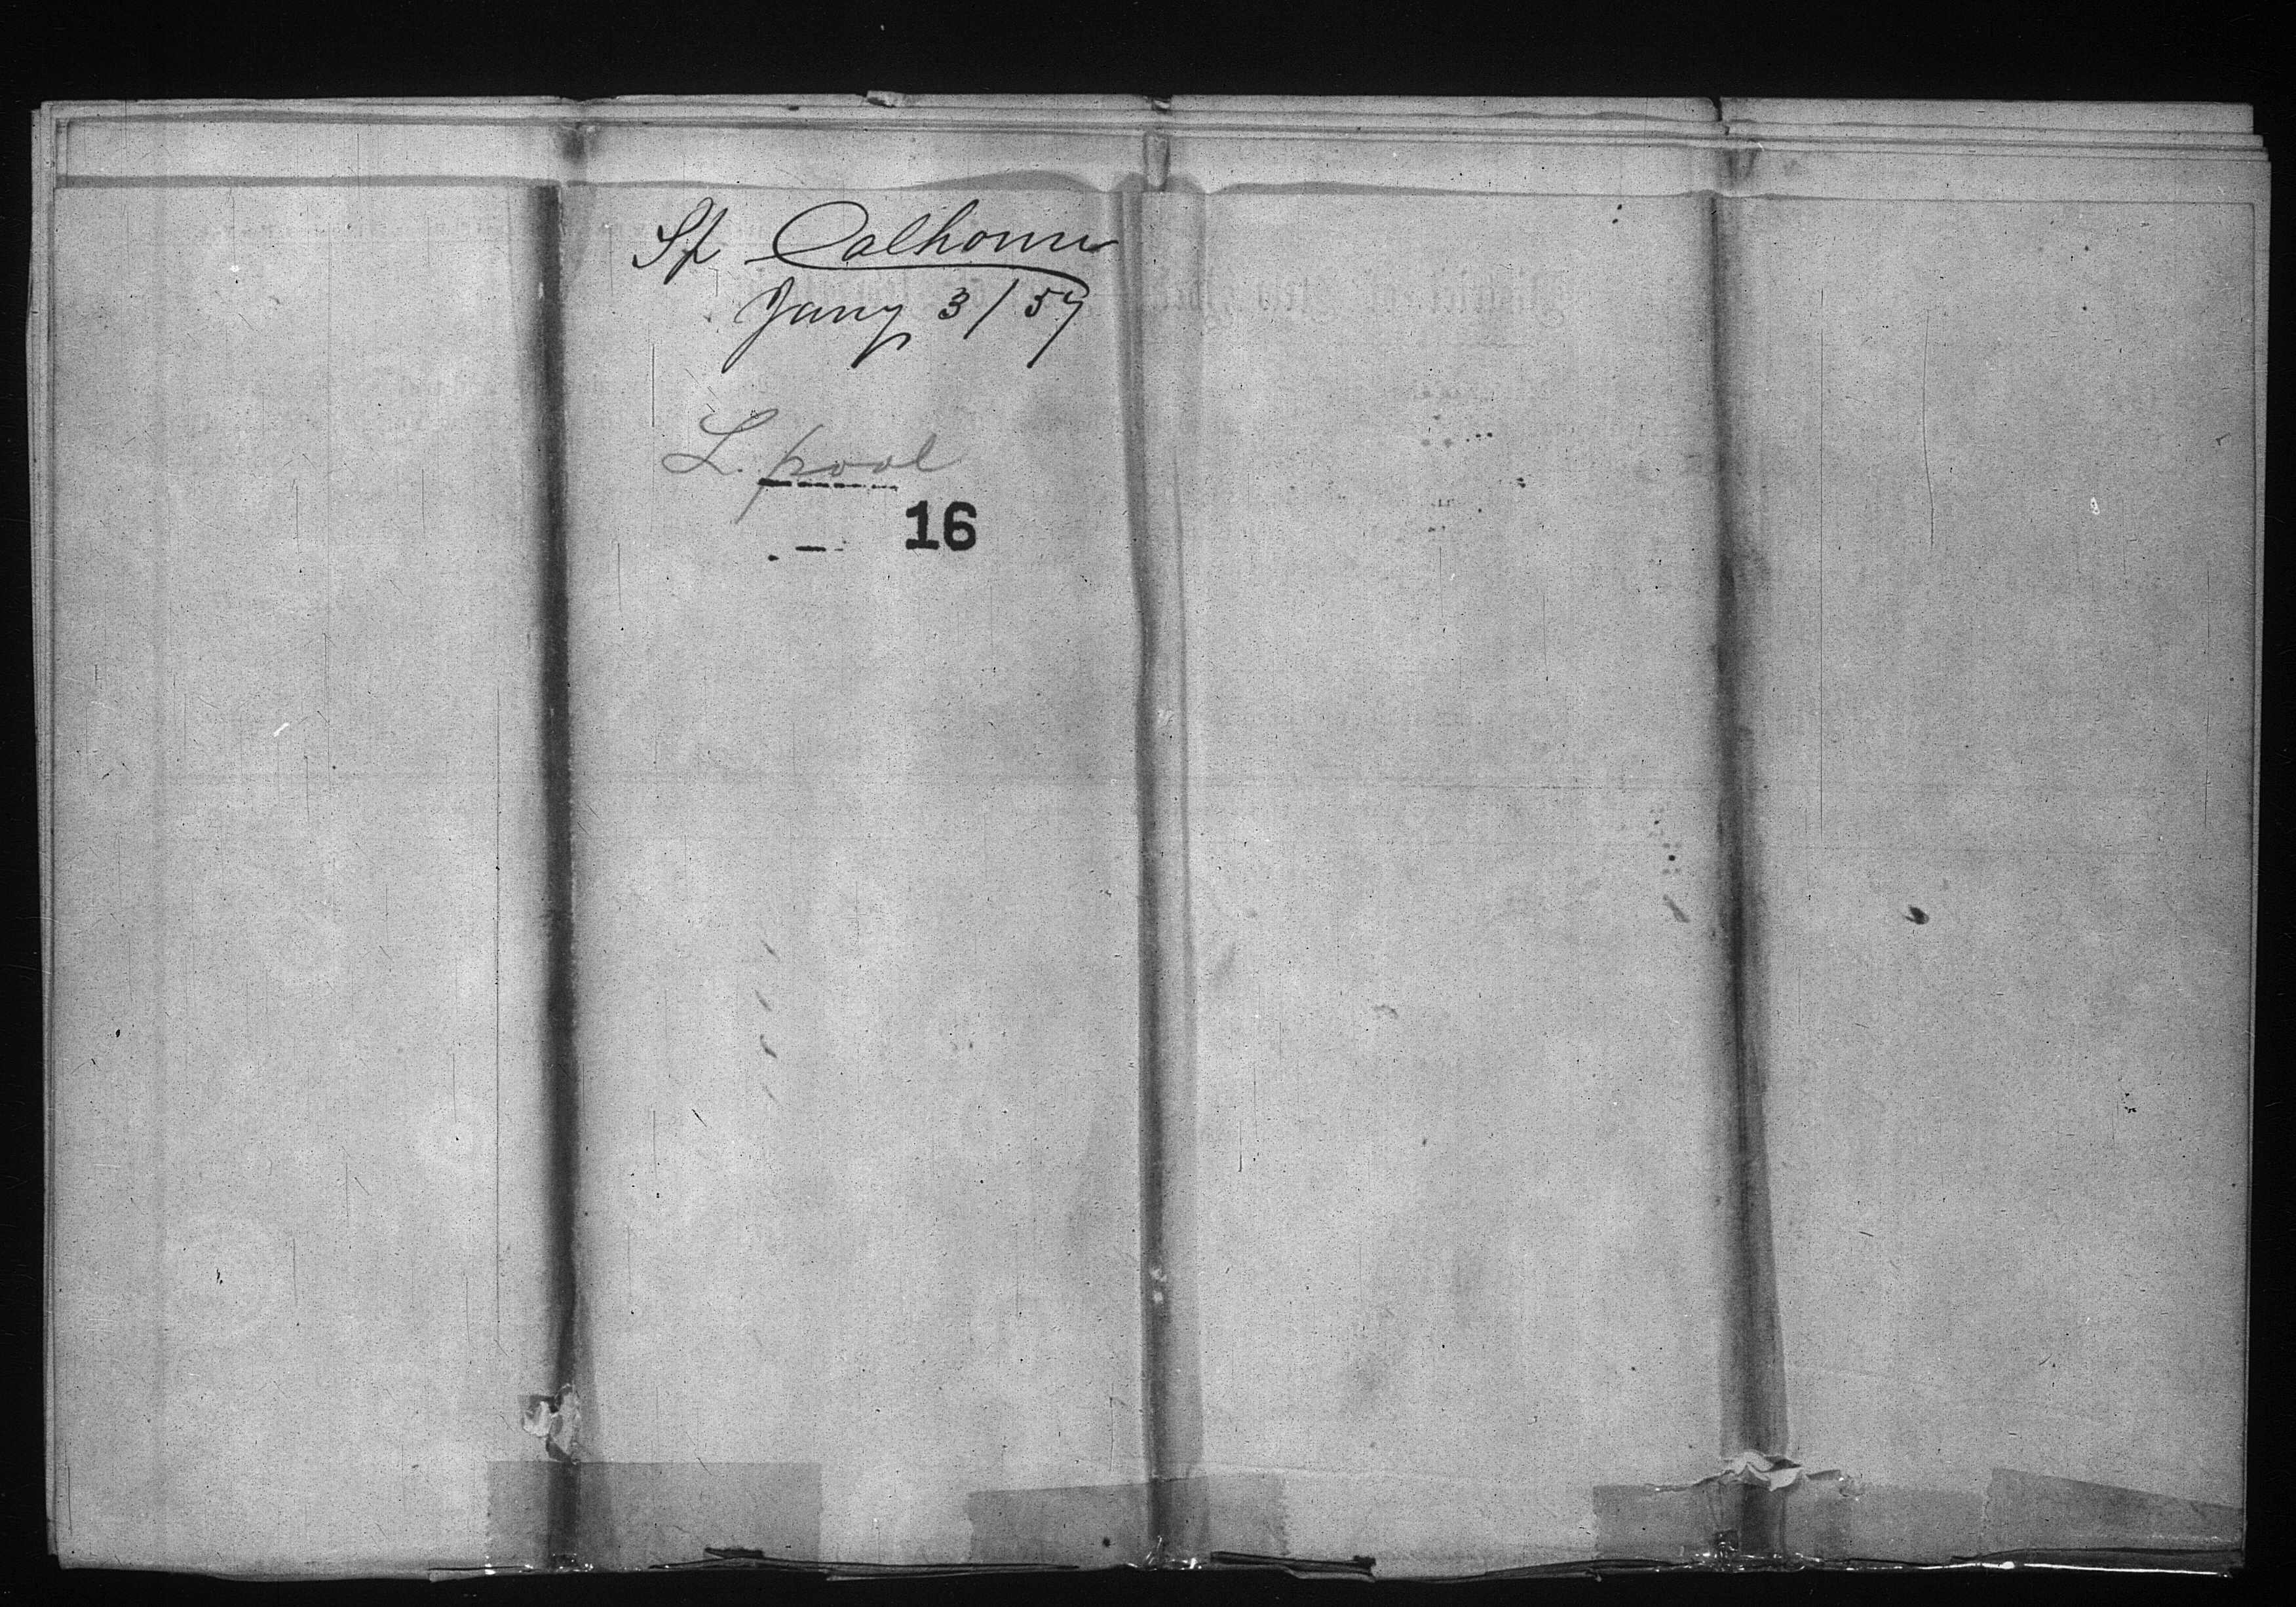 Sp Calhoun
Jany 3/57
L.pool
16